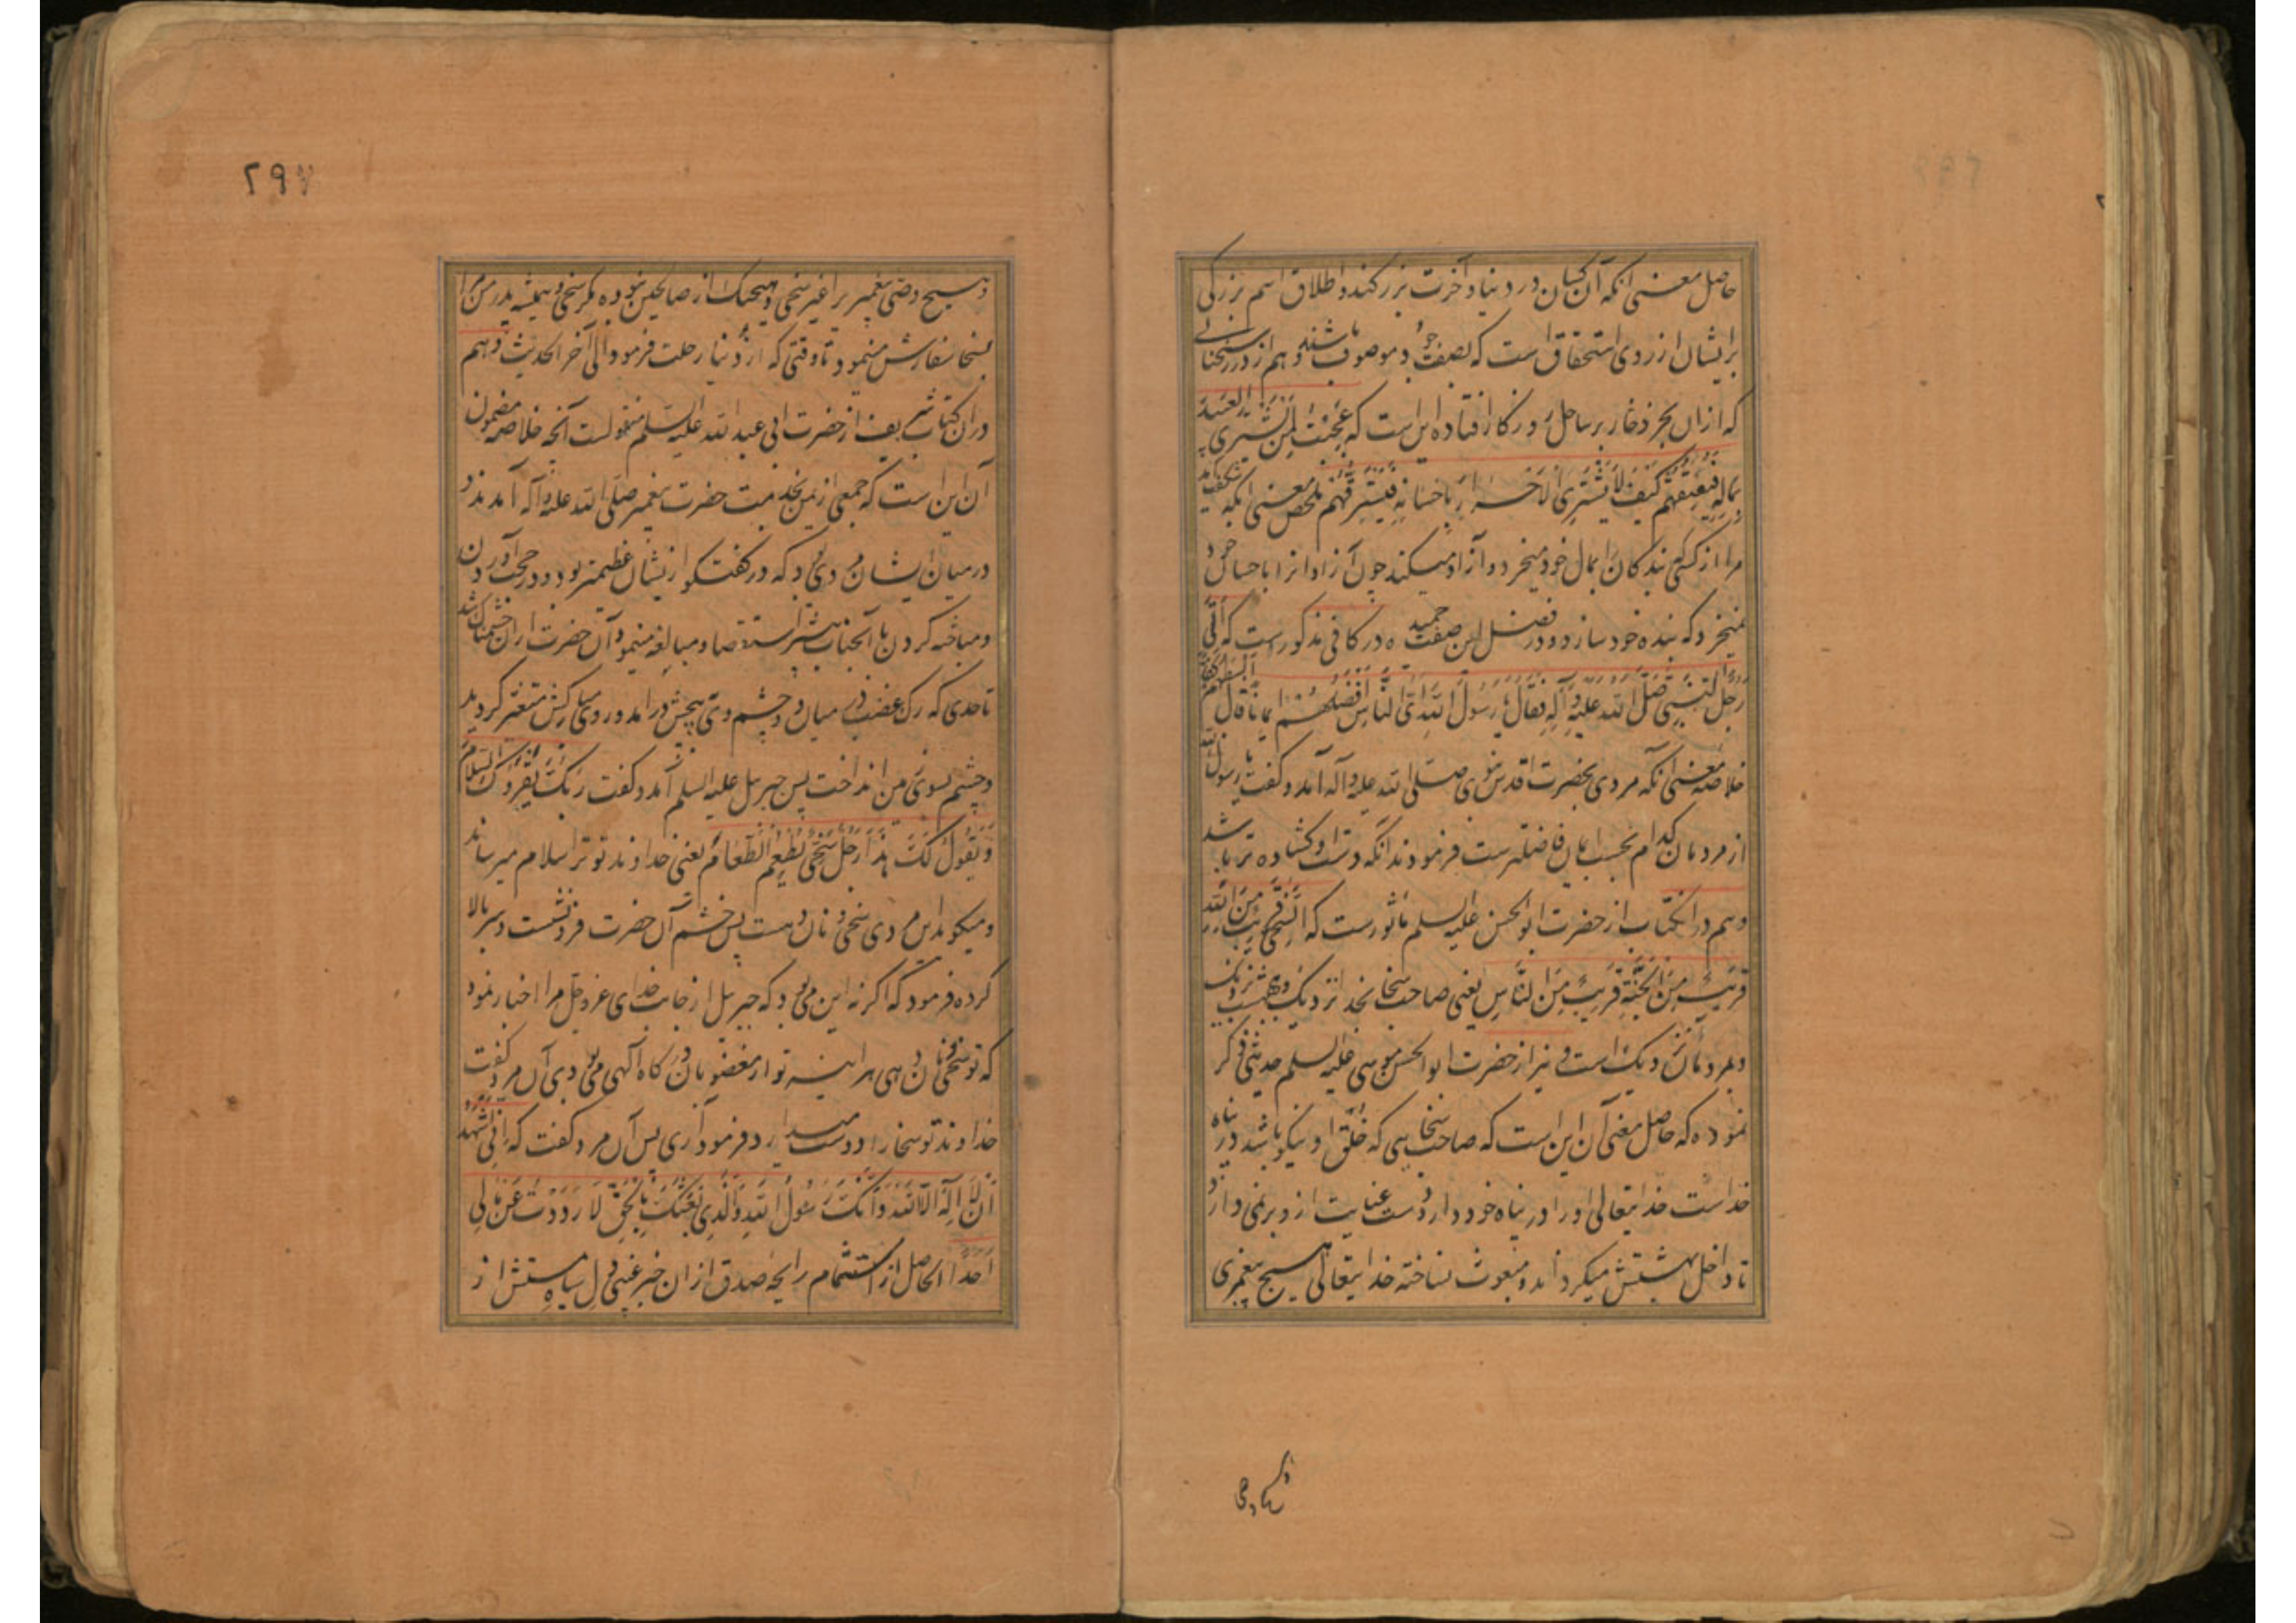 حاصل معنی آنکه آن کسان در دنیا و آخرت بزرگند و اطلاق اسم بزرگی
برایشان از روی استحقاق است که بصفت جود موصوف باشند و هم از درر سخنانی
که از آن بحر ذخار بر ساحل روزگار افتاده این است که عَجِبْتُ لِمَنْ یَشْتَرِی العَبِیدَ
بِمالِهِ فَیُعْتِقُهُمْ کَیْفَ لا یَشْتَرِی الاَحْرارَ بِاِحْسانِهِ فَیَسْتَرِقُّهُمْ ملخص معنی آنکه شگفت آید
مرا از کسی که بندگان را بمال خود میخرد و آزاد میکند چون آزادان را باحسان خود
نمیخرد که بنده خود سازد و در فضل این صفت حمیده در کافی مذکور است که اَتی
رَجُلٌ النَّبِیَّ صَلَّی اللّهُ عَلَیْهِ وَآلِهِ فَقالَ یا رَسُولَ اللّهِ اَیُّ النّاسِ اَفْضَلُهُمْ اِیمانًا قالَ اَبْسَطُهُمْ کَفًّا
خلاصه معنی آنکه مردی بحضرت اقدس نبوی صلی الله علیه و آله آمد و گفت یا رسول الله
از مردمان کدام بحسب ایمان فاضلترست فرمودند آنکه دست او گشاده تر باشد
و هم در آن کتاب از حضرت ابو الحسن علیه السلم ماثورست که اَلسَّخِیُّ قَرِیبٌ مِنَ اللّهِ
قَرِیبٌ مِنَ الجَنَّةِ قَرِیبٌ مِنَ النّاسِ یعنی صاحب سخا بخدا نزدیک و ببهشت نزدیک
و بمردمان نزدیک است و نیز از حضرت ابو الحسن موسی علیه السلم حدیثی ذکر
نموده که حاصل معنی آن این است که صاحب سخایی که خلق او نیکو باشد در پناه
خداست خدایتعالی او را در پناه خود دارد و دست عنایت ازو بر نمی دارد
تا داخل بهشتش میگرداند و مبعوث نساخته خدایتعالی هیچ پیغمبری
۲۹۷
و هیچ وصی پیغمبر را غیر سخی و هیچیک از صالحین نبوده مگر سخی و همیشه پدر من مرا
بسخا سفارش مینمود تا وقتی که از دنیا رحلت فرمود الی آخر الحدیث و هم
در آن کتاب شریف از حضرت ابی عبد الله علیه السلم منقولست آنچه خلاصه مضمون
آن این است که جمعی از یمن بخدمت حضرت پیغمبر صلی الله علیه و آله آمدند و
در میان ایشان مردی بود که در گفتگو از ایشان عظیمتر بود و در حجت آوردن
و مباحثه کردن با آنجناب بیشتر استقصا و مبالغه مینمود آن حضرت از آن خشمناک شد
تا حدی که رگ غضب در میان دو چشم وی بپیچش درآمد و روی مبارکش متغیر گردید
و چشم بسوی زمین انداخت پس جبرییل علیه السلم آمد و گفت رَبُّکَ یُقْرِؤُکَ السَّلامَ
وَیَقُولُ لَکَ هذا رَجُلٌ سَخِیٌّ یُطْعِمُ الطَّعامَ یعنی خداوند تو ترا سلام میرساند
و میگوید این مردی سخی و نان ده است پس خشم آن حضرت فرونشست و سر بالا
کرده فرمود که اگر نه این می بود که جبرییل از جانب خدای عز و جل مرا اخبار نمود
که تو سخی و نان دهی هر آینه تو از مغضوبان درگاه آلهی می بودی آن مرد گفت
خداوند تو سخا را دوست میدارد فرمود آری پس آن مرد گفت که اِنِّی اَشْهَدُ
اَنْ لا اِلهَ اِلاَّ اللّهُ وَاَنَّکَ رَسُولُ اللّهِ وَالَّذِی بَعَثَکَ بِالحَقِّ لا رَدَدْتُ عَنْ مالِی
اَحَدًا الحاصل از استشمام رایحه صدق از آن خبر غیبی دل سیاه مستش از